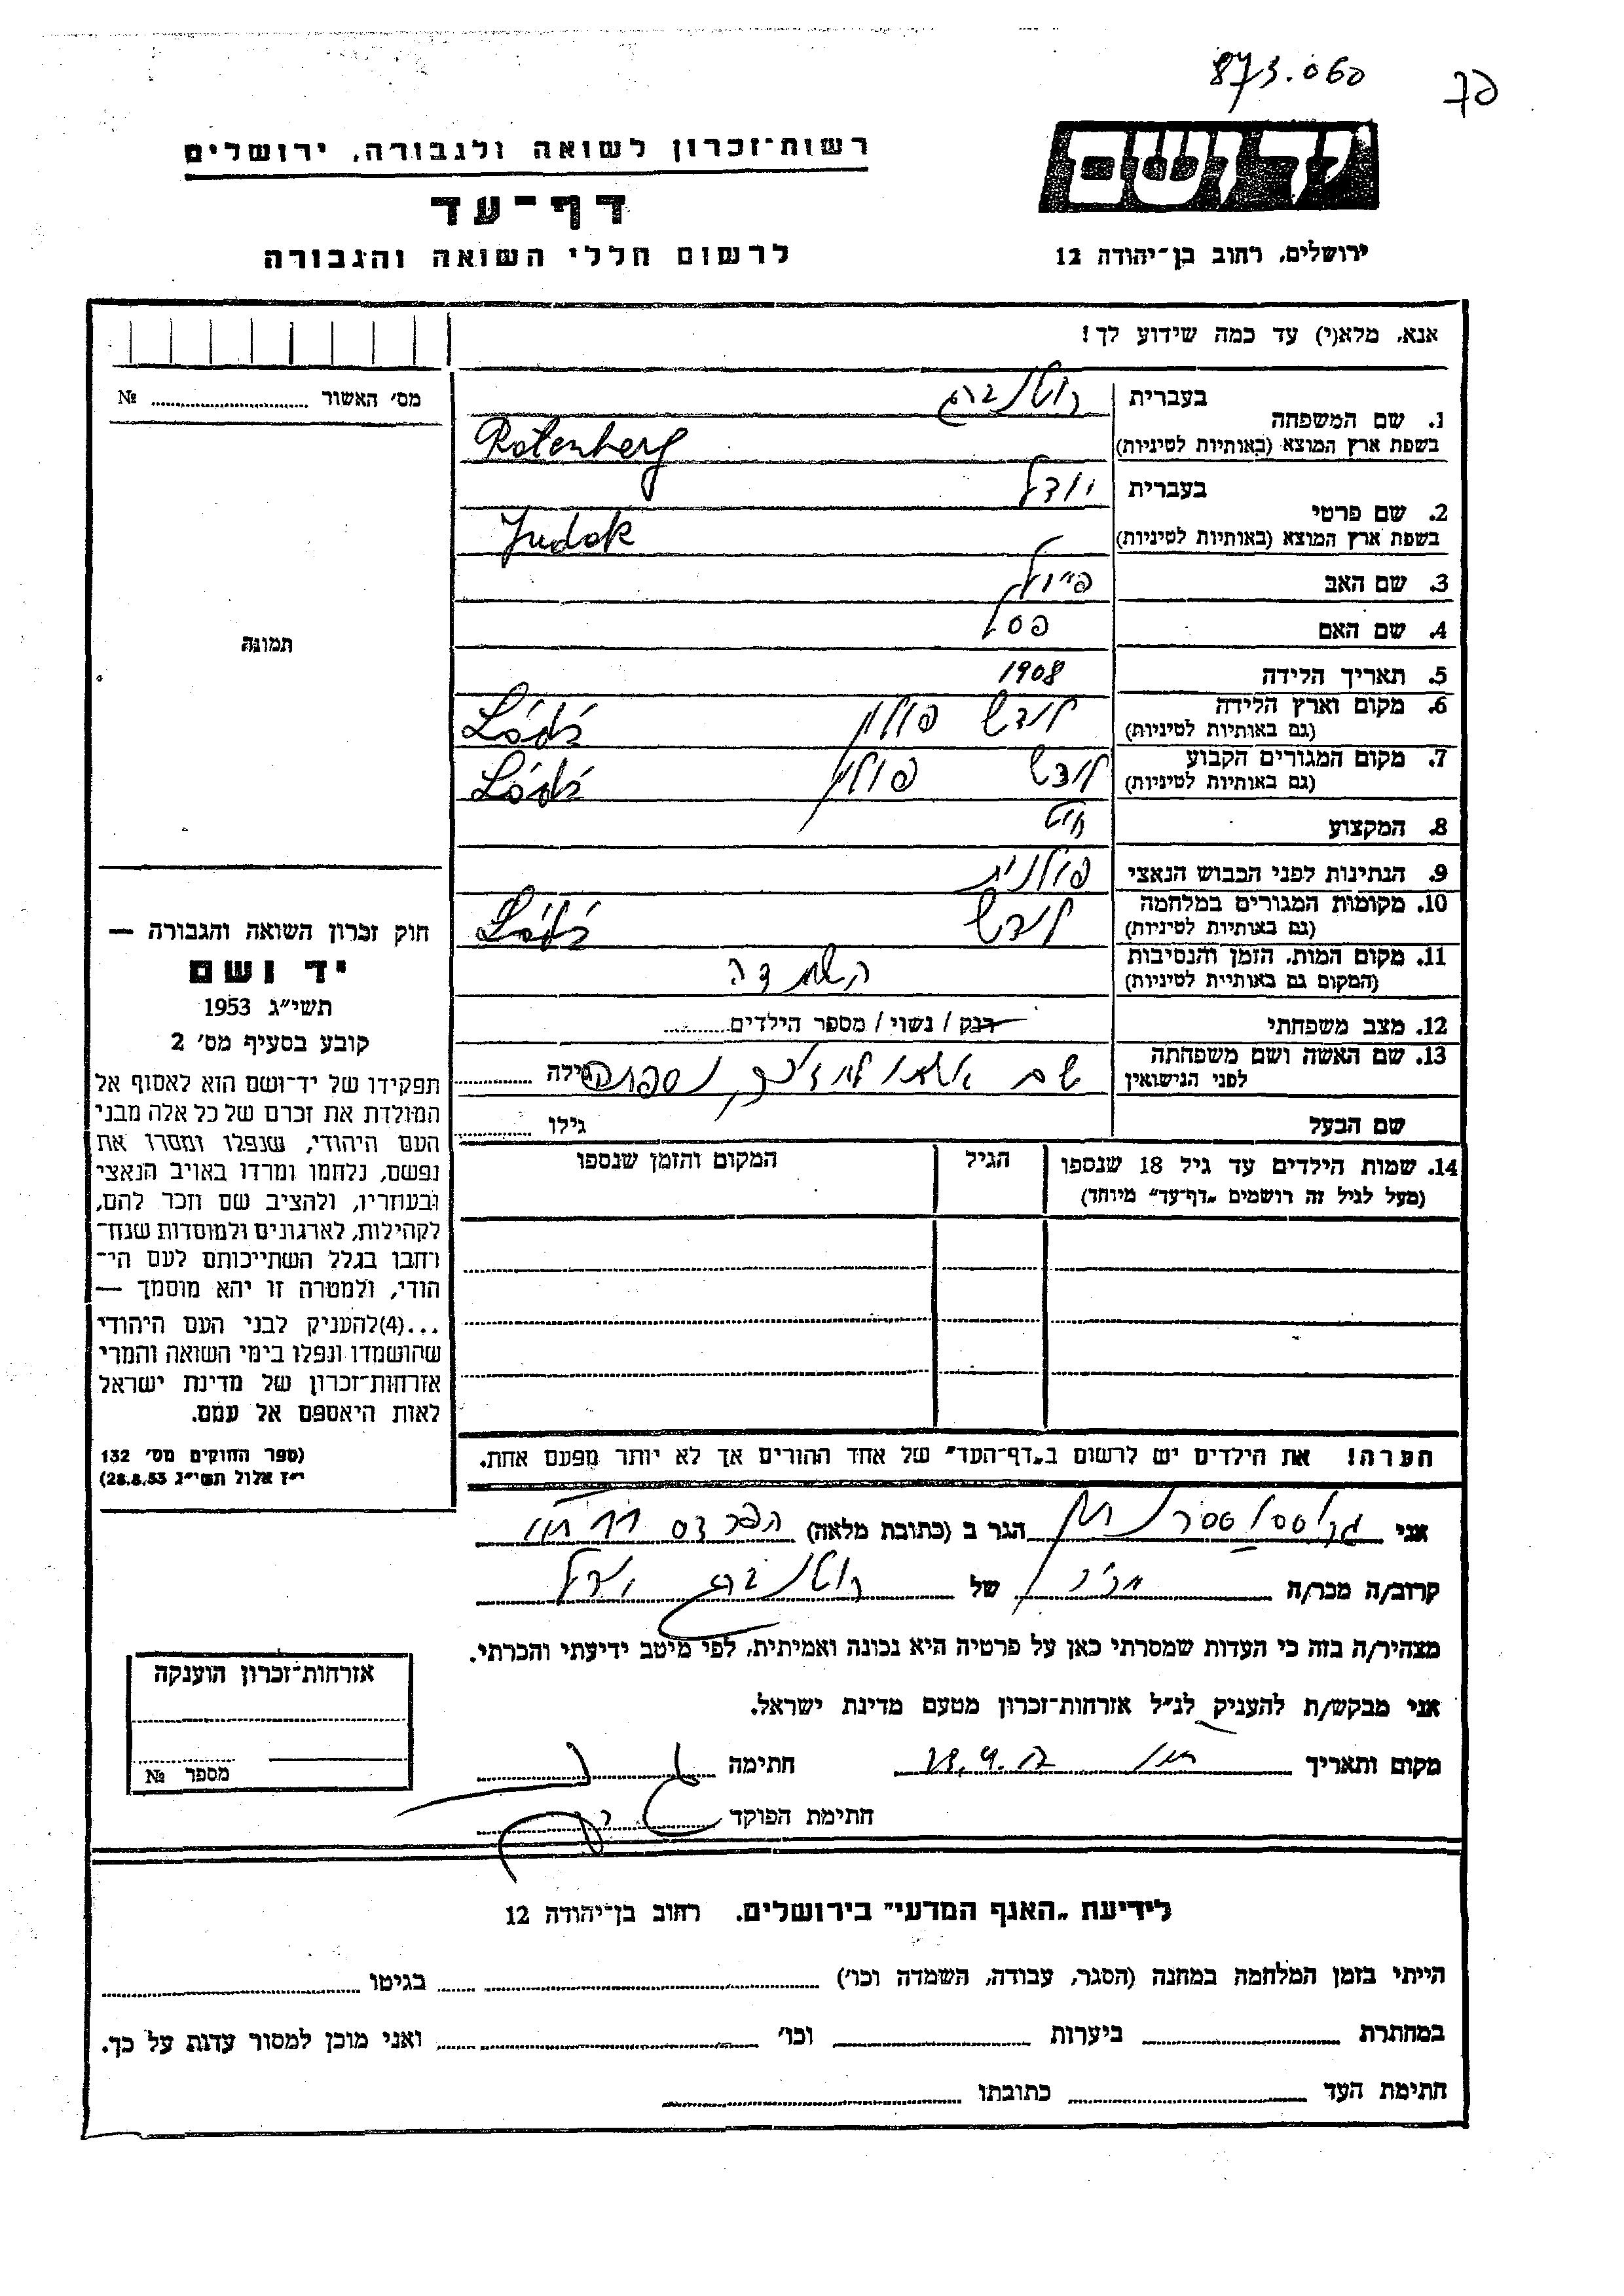 873.060
דף
רשות־זכרון לשואה ולגבורה, ירושלים
דף־עד
לרשום חללי השואה והגבורה
יד ושם
ירושלים, רחוב בן־יהודה 12
אנא, מלא(י) עד כמה שידוע לך!
מס׳ האשור № ........
1. שם המשפחה
בעברית רוטנברג
בשפת ארץ המוצא (באותיות לטיניות) Rotenberg
2. שם פרטי
בעברית יודל
בשפת ארץ המוצא (באותיות לטיניות) Judok
3. שם האב
4. שם האם פסל
5. תאריך הלידה 1908
6. מקום וארץ הלידה לודש פולין Łódź
(גם באותיות לטיניות)
7. מקום המגורים הקבוע לודש פולין Łódź
(גם באותיות לטיניות)
8. המקצוע חייט
9. הנתינות לפני הכבוש הנאצי פולנית
10. מקומות המגורים במלחמה לודש Łódź
(גם באותיות לטיניות)
11. מקום המות, הזמן והנסיבות השמדה
(המקום גם באותיית לטיניות)
12. מצב משפחתי רווק / נשוי / מספר הילדים........
13. שם האשה ושם משפחתה
לפני הנישואין גילה ........
שם הבעל גילו ........
14. שמות הילדים עד גיל 18 שנספו הגיל המקום והזמן שנספו
(מעל לגיל זה רושמים „דף־עד״ מיוחד)
הערה! את הילדים יש לרשום ב„דף־העד״ של אחד ההורים אך לא יותר מפעם אחת.
תמונה
חוק זכרון השואה והגבורה —
יד ושם
תשי״ג 1953
קובע בסעיף מס׳ 2
תפקידו של יד־ושם הוא לאסוף אל
המולדת את זכרם של כל אלה מבני
העם היהודי, שנפלו ומסרו את
נפשם, נלחמו ומרדו באויב הנאצי
ובעוזריו, ולהציב שם וזכר להם,
לקהילות, לארגונים ולמוסדות שנח־
רחבו בגלל השתייכותם לעם הי־
הודי, ולמטרה זו יהא מוסמך —
...(4)להעניק לבני העם היהודי
שהושמדו ונפלו בימי השואה והמרי
אזרחות־זכרון של מדינת ישראל
לאות היאספם אל עמם.
(ספר החוקים מס׳ 132
י״ז אלול תשי״ג 28.8.53)
אני הגר ב (כתובת מלאה)
קרוב/ה מכר/ה של רוטנברג יודל
מצהיר/ה בזה כי העדות שמסרתי כאן על פרטיה היא נכונה ואמיתית, לפי מיטב ידיעתי והכרתי.
אני מבקש/ת להעניק לנ״ל אזרחות־זכרון מטעם מדינת ישראל.
מקום ותאריך חתימה
חתימת הפוקד
אזרחות־זכרון הוענקה
מספר №
לידיעת „האגף המדעי״ בירושלים. רחוב בן־יהודה 12
הייתי בזמן המלחמה במחנה (הסגר, עבודה, השמדה וכו׳) ........ בגיטו ........
במחתרת ........ ביערות ........ וכו׳ ........ ואני מוכן למסור עדות על כך.
חתימת העד ........ כתובתו ........